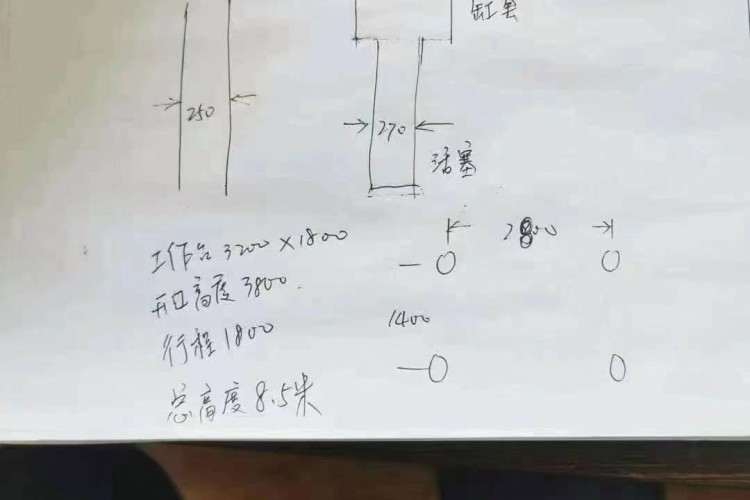 缸套
250
270
活塞
2800
工作台 3200×1800
开口高度 3800
行程 1800
1400
总高度 8.5米